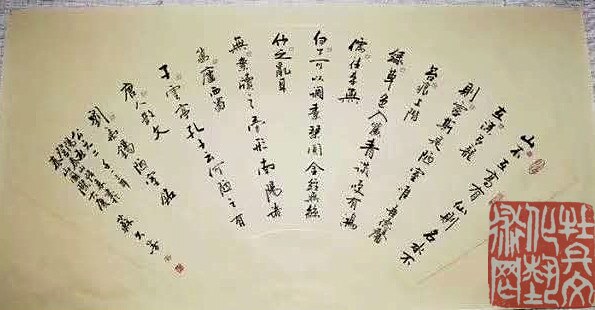 山不在高有仙則名水不
在深有龍
則靈斯是陋室惟吾德馨
苔痕上階
綠草色入簾青談笑有鴻
儒往來無
白丁可以調素琴閱金經無絲
竹之亂耳
無案牘之勞形南陽諸
葛廬西蜀
子雲亭孔子云何陋之有
唐人
劉禹錫陋室銘
牡丹文
化艺
术网